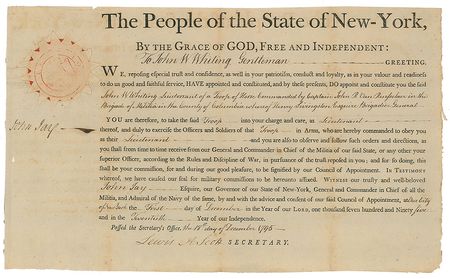 The People of the State of New-York,
By the Grace of GOD, Free and Independent:
To John W Whiting Gentleman GREETING.
WE, reposing especial trust and confidence, as well in your patriotism, conduct and loyalty, as in your valour and readiness
to do us good and faithful service, HAVE appointed and constituted, and by these presents, DO appoint and constitute you the said
John W Whiting Lieutenant of a Troop of Horse Commanded by Captain John R Van Rensselaer in the
Brigade of Militia in the County of Columbia whereof Henry Livingston Esquire is Brigadier General
YOU are therefore, to take the said Troop into your charge and care, as Lieutenant
John Jay
thereof, and duly to exercise the Officers and Soldiers of that Troop in Arms, who are hereby commanded to obey you
as their Lieutenant and you are also to observe and follow such orders and directions, as
you shall from time to time receive from our General and Commander in Chief of the Militia of our said State, or any other your
Superior Officer, according to the Rules and Discipline of War, in pursuance of the trust reposed in you; and for so doing, this
shall be your commission, for and during our good pleasure, to be signified by our Council of Appointment. In Testimony
whereof, we have caused our seal for military commissions to be hereunto affixed. Witness our trusty and well-beloved
John Jay Esquire, our Governor of our State of New-York, General and Commander in Chief of all the
Militia, and Admiral of the Navy of the same, by and with the advice and consent of our said Council of Appointment, at our City
of New York the First day of December in the Year of our Lord, one thousand seven hundred and Ninety five
and in the Twentieth Year of our Independence.
Passed the Secretary's Office, the 18th day of December 1795
Lewis A. Scott SECRETARY.